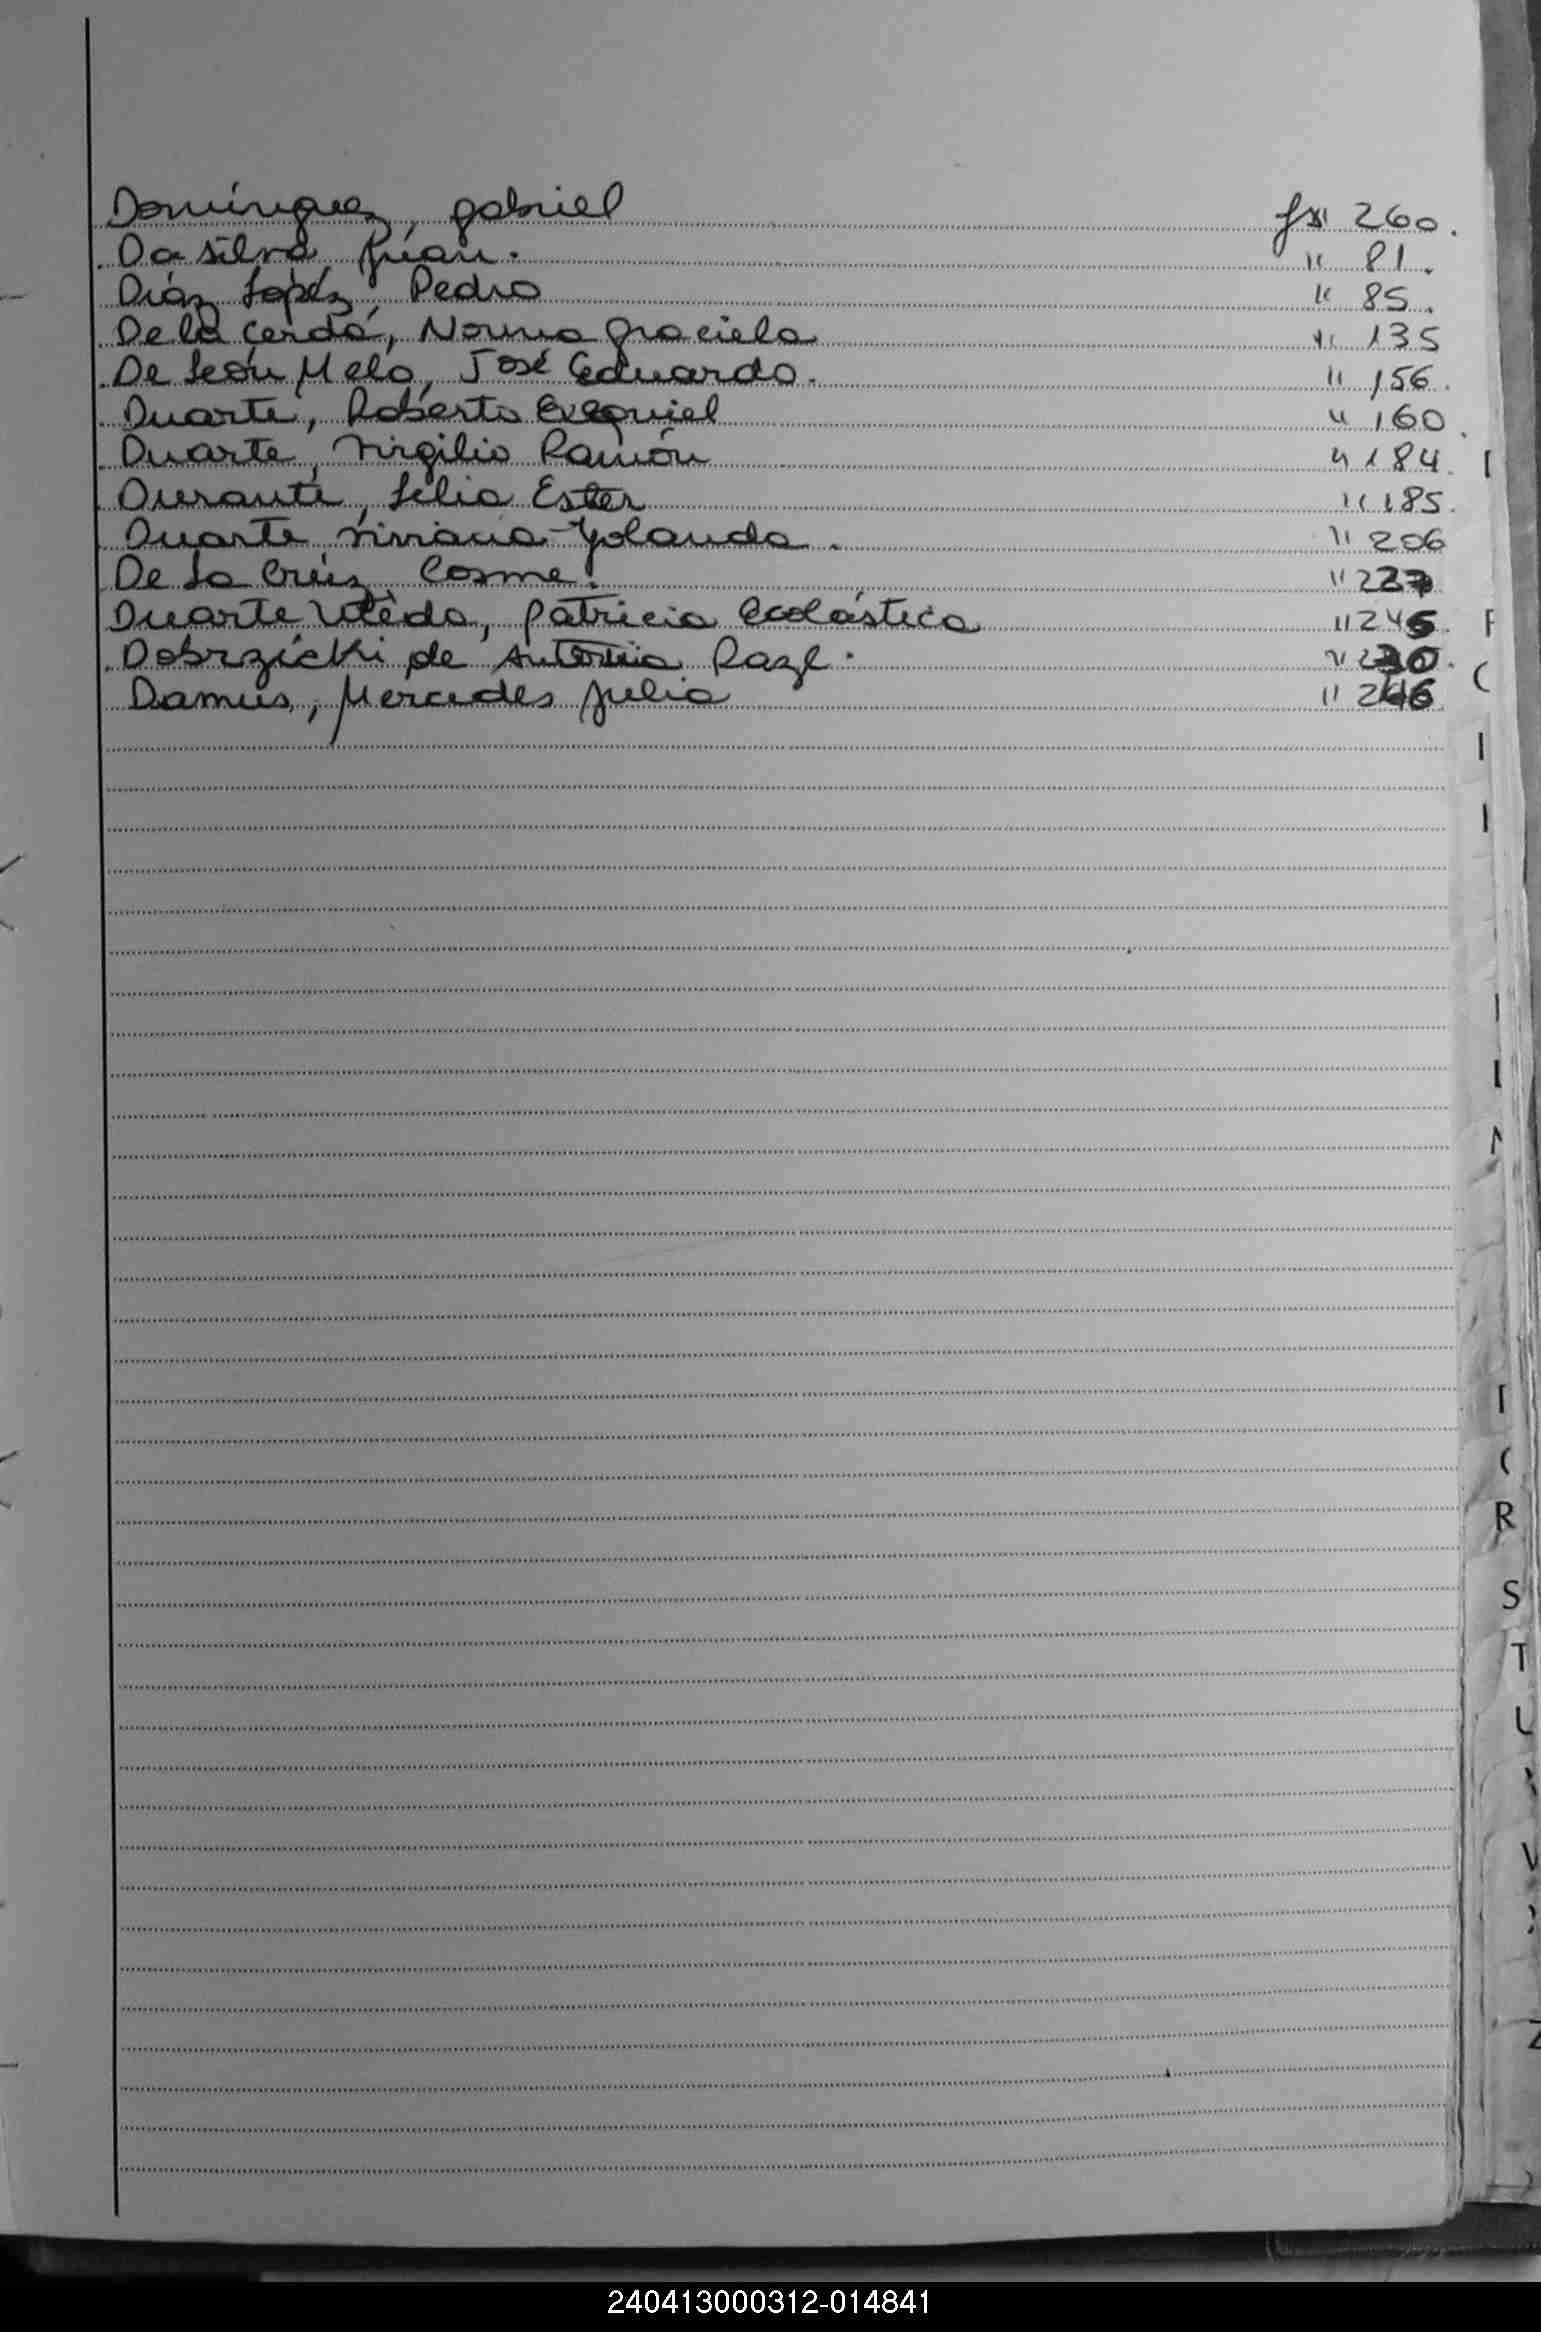 Domínguez, Gabriel fs 260.
Da Silva Juan. " 81.
Diáz Lopéz, Pedro " 85.
De la Cerda, Norma Graciela " 135
De León Melo, José Eduardo. " 156.
Duarte, Roberto Exequiel " 160.
Duarte, Virgilio Ramón " 184.
Durante, Lelia Ester " 185.
Duarte, Viviana Yolanda. " 206
De La Cruz, Cosme. " 227
Duarte Utedo, Patricia Escolástica " 245.
Dobrzicki de Antonia Raze. " 230.
Damus, Mercedes Julia " 246
R
S
T
U
V
Z
240413000312-014841